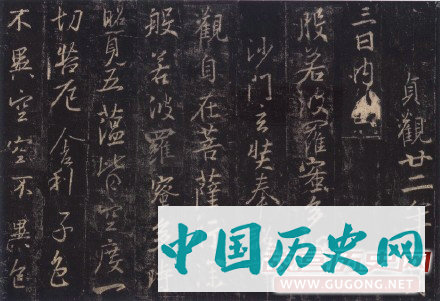 貞觀廿二年
三日内出
般若波羅蜜多
沙門玄奘奉
觀自在菩薩行深
般若波羅蜜多時
照見五蘊皆空度一
切苦厄舍利子色
不異空空不異色
中国历史网
WWW.GUGONG.NET